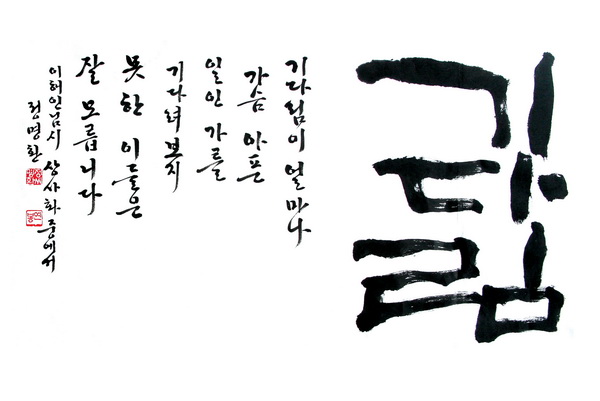 기다림
기다림이 얼마나
가슴 아픈
일인 가를
기다려 보지
못한 이들은
잘 모릅니다
이해인님시 상사화 중에서
정명환